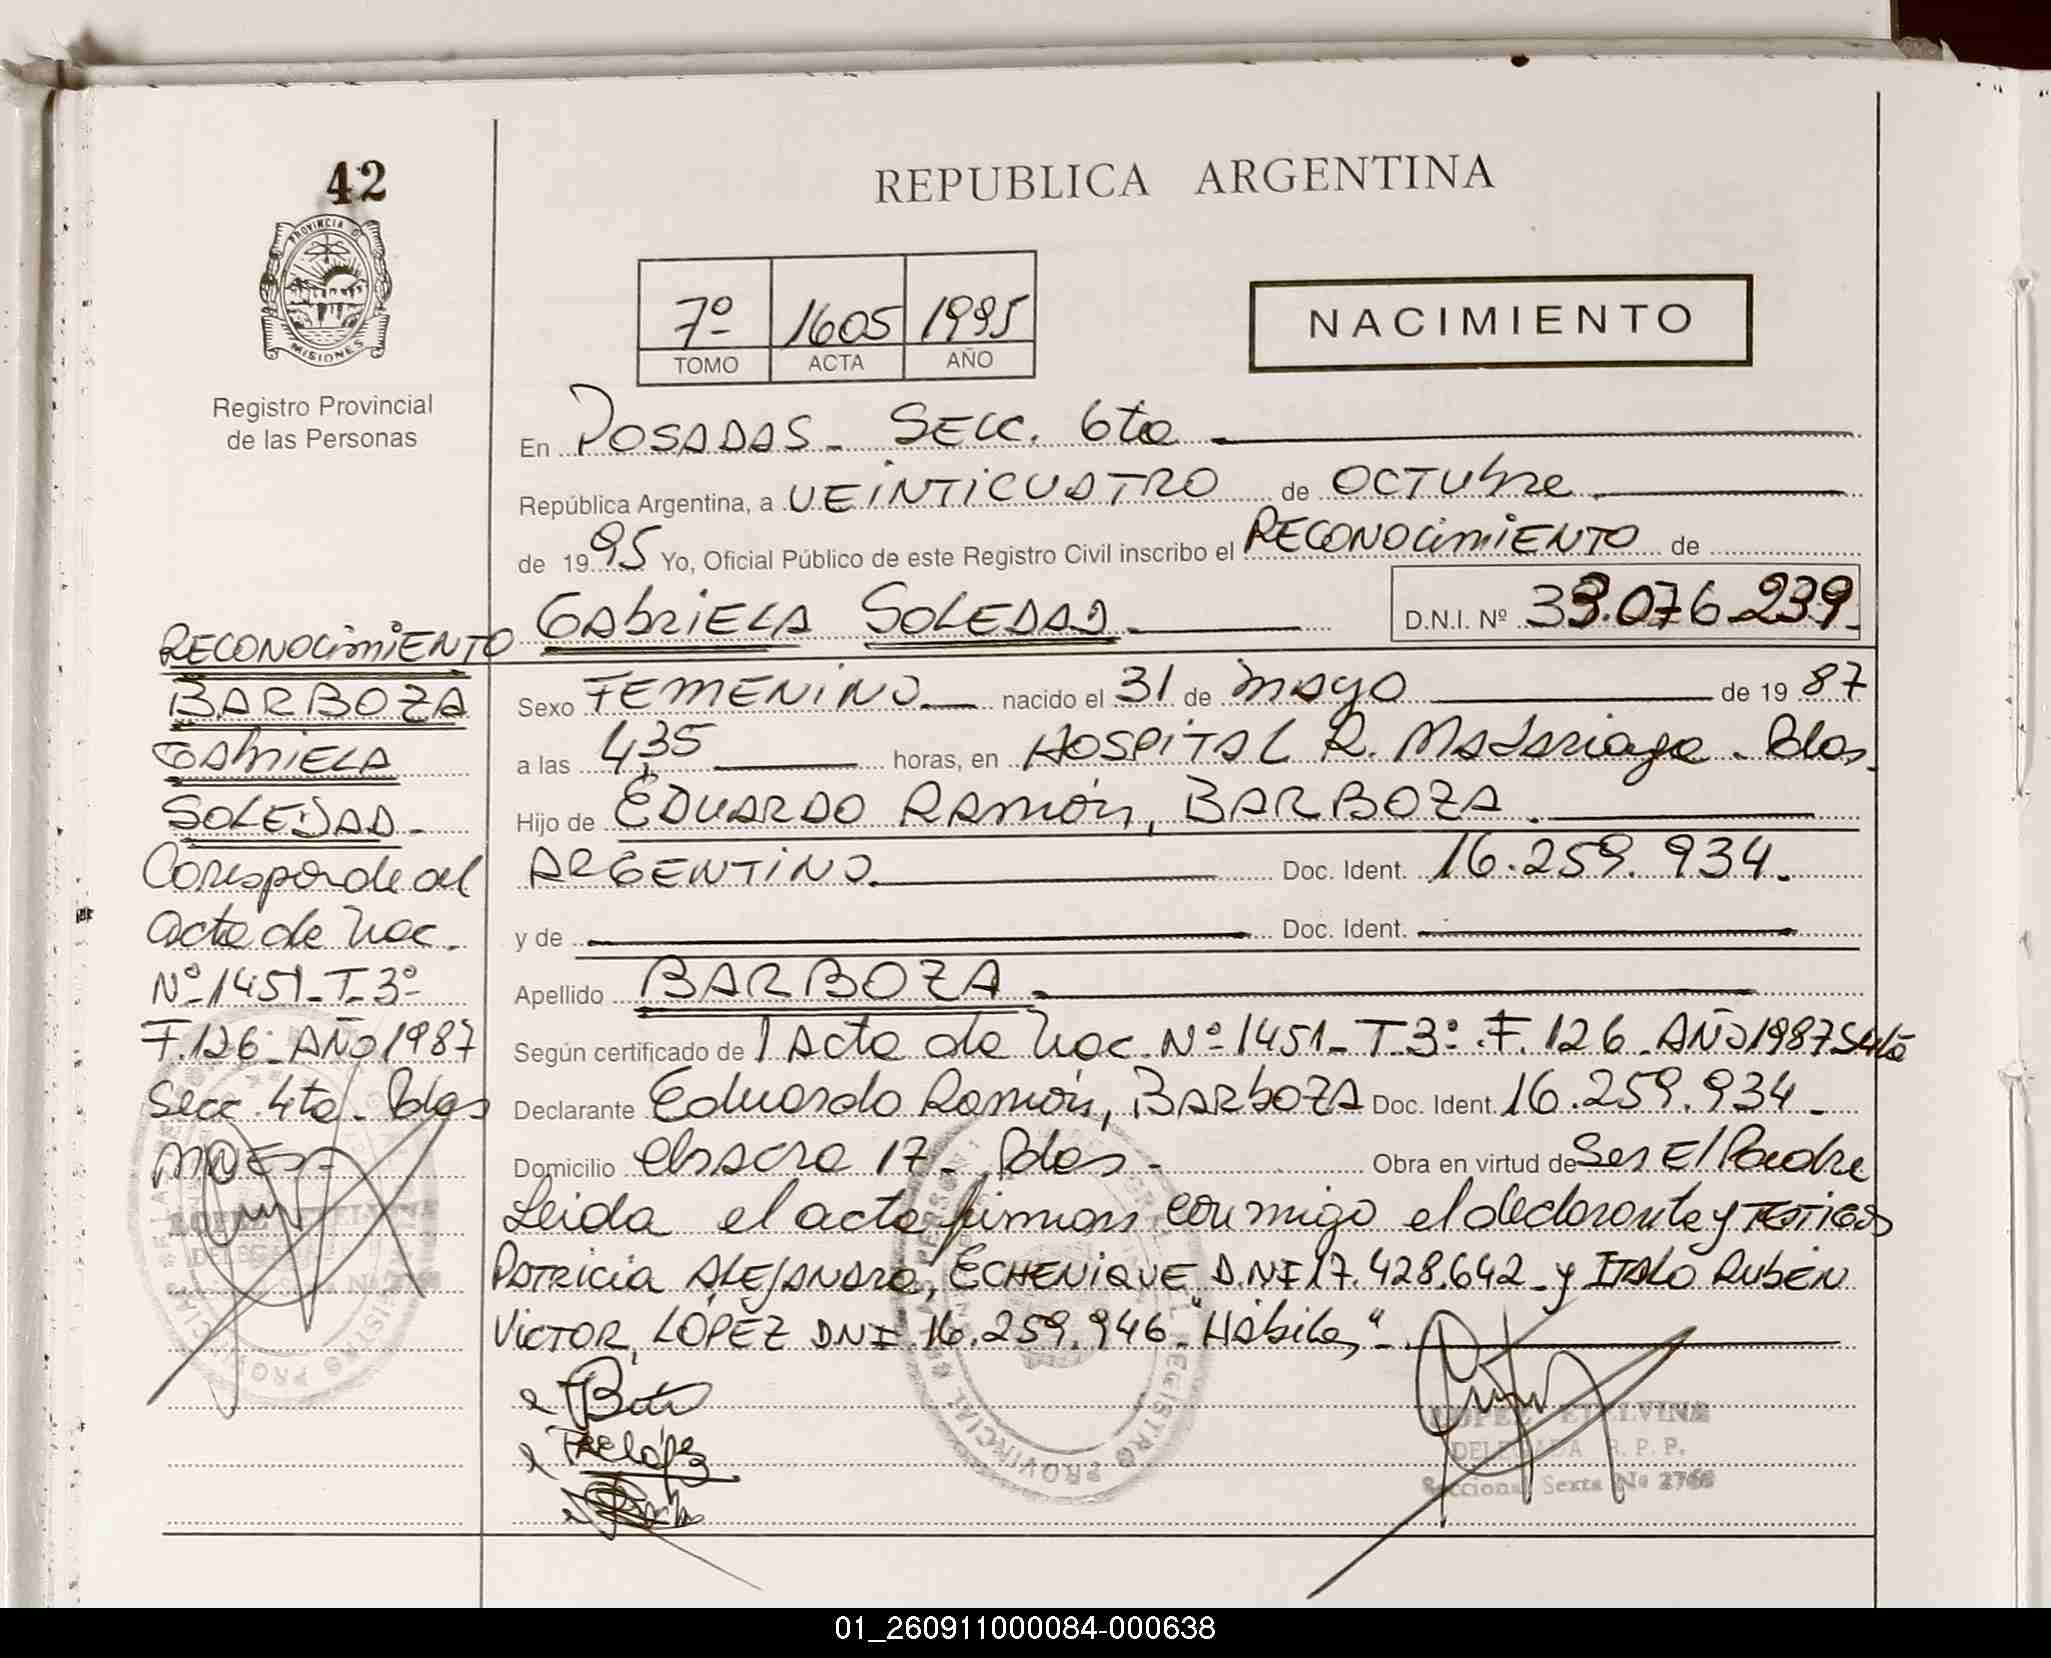 42
PROVINCIA D
MISIONES
Registro Provincial
de las Personas
REPUBLICA ARGENTINA
7º 1605 1995
TOMO ACTA AÑO
NACIMIENTO
En POSADAS - SECC. 6ta
República Argentina, a VEINTICUATRO de OCTUbre
de 1995 Yo, Oficial Público de este Registro Civil inscribo el RECONOCimiENTO de
GAbriELA SOLEDAD D.N.I. Nº 33.076.239
Sexo FEMENINO nacido el 31 de mayo de 1987
a las 4,35 horas, en HOSPITAL R. Madariaga - Pdas.
Hijo de EDUARDO RAMÓN, BARBOZA
ARGENTINO Doc. Ident. 16.259.934.
y de Doc. Ident.
Apellido BARBOZA
Según certificado de Acta de Nac. Nº 1451 - T. 3º. F. 126 - AÑO 1987 S4tª
Declarante Eduardo Ramón, BARbOZA Doc. Ident. 16.259.934 -
Domicilio chacra 17 - Pdas - Obra en virtud de Ser El Padre
Leida el acta firman conmigo el declarante y TESTIGOS
PATRICIA ALEJANDRA, ECHENIQUE D.N.I 17.428.642 - y ITALO RUBÉN
VICTOR, LÓPEZ DNI 16.259.946 - "Hábiles" -
RECONOCimiENTO
BARBOZA
GAbriELA
SOLEDAD -
Corresponde al
acta de Nac.
Nº 1451 - T - 3º
F. 126 - AÑO 1987
Secc. 4ta - Pdas
MNES -
LOPEZ ETELVINA
DELEGADA R. P. P.
Seccional Sexta Nº 2768
REGISTRO PROVINCIAL DE LAS PERSONAS
01_260911000084-000638